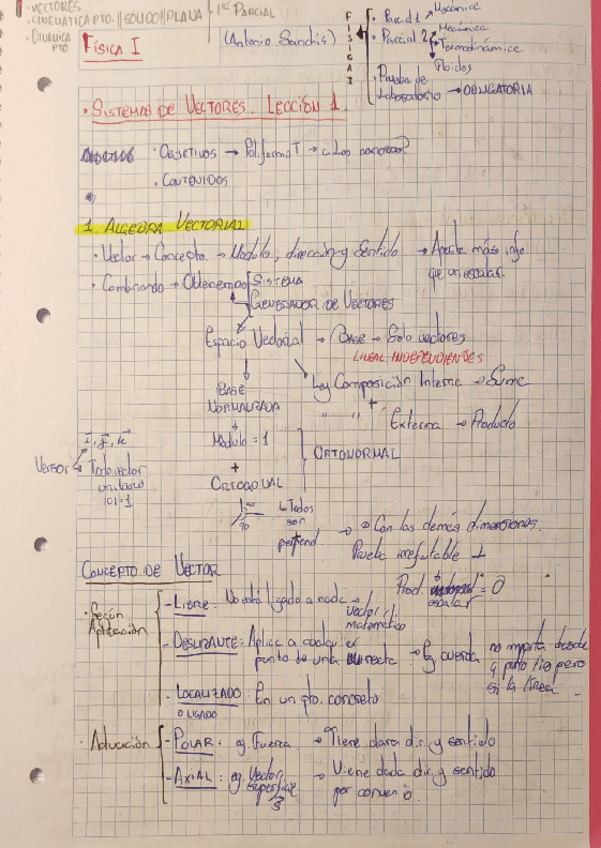 - VECTORES
- CINEMATICA PTO. || SOLIDO || PLANA
- DINÁMICA PTO
1er PARCIAL
FÍSICA I
(Antonio Sanchís)
FISICA I
• Parcial 1 → Mecánica
• Parcial 2 → Mecánica
→ Termodinámica
→ Fluidos
• Prueba de Laboratorio → OBLIGATORIA
• SISTEMAS DE VECTORES. LECCIÓN 1.
• Objetivos → PoliformaT → ¿Los conozco?
• CONTENIDOS
1 ALGEBRA VECTORIAL
• Vector → Concepto → Modulo, dirección y Sentido → Aporta más info
que un escalar.
• Combinando → Obtenemos SISTEMA
GENERADOR DE VECTORES
Espacio Vectorial → BASE → Solo vectores
LINEAL INDEPENDIENTES
BASE
NORMALIZADA
Ley Composición Interna → Suma
+
" " Externa → Producto
Módulo = 1
ORTONORMAL
+
ORTOGONAL
i, j, k
VERSOR → Todo vector
unitario
|v| = 1
90
90
↳ Todos
son
perpend.
→ Con las demás dimensiones.
Prueba irrefutable ⊥
Prod. escalar = 0
CONCEPTO DE VECTOR
• Según
Aplicación
- LIBRE: No está ligado a nada → vector
matemático
- DESLIZANTE: Aplica a cualquier
punto de una recta → Eg cuerda no importa desde
q punto tiro pero
si la línea
- LOCALIZADO: En un pto. concreto
O LIGADO
• Actuación
- POLAR: eg. Fuerza → Tiene clara dir. y sentido
- AXIAL: eg. Vector
superficie
→ Viene dada dir. y sentido
por convenio.